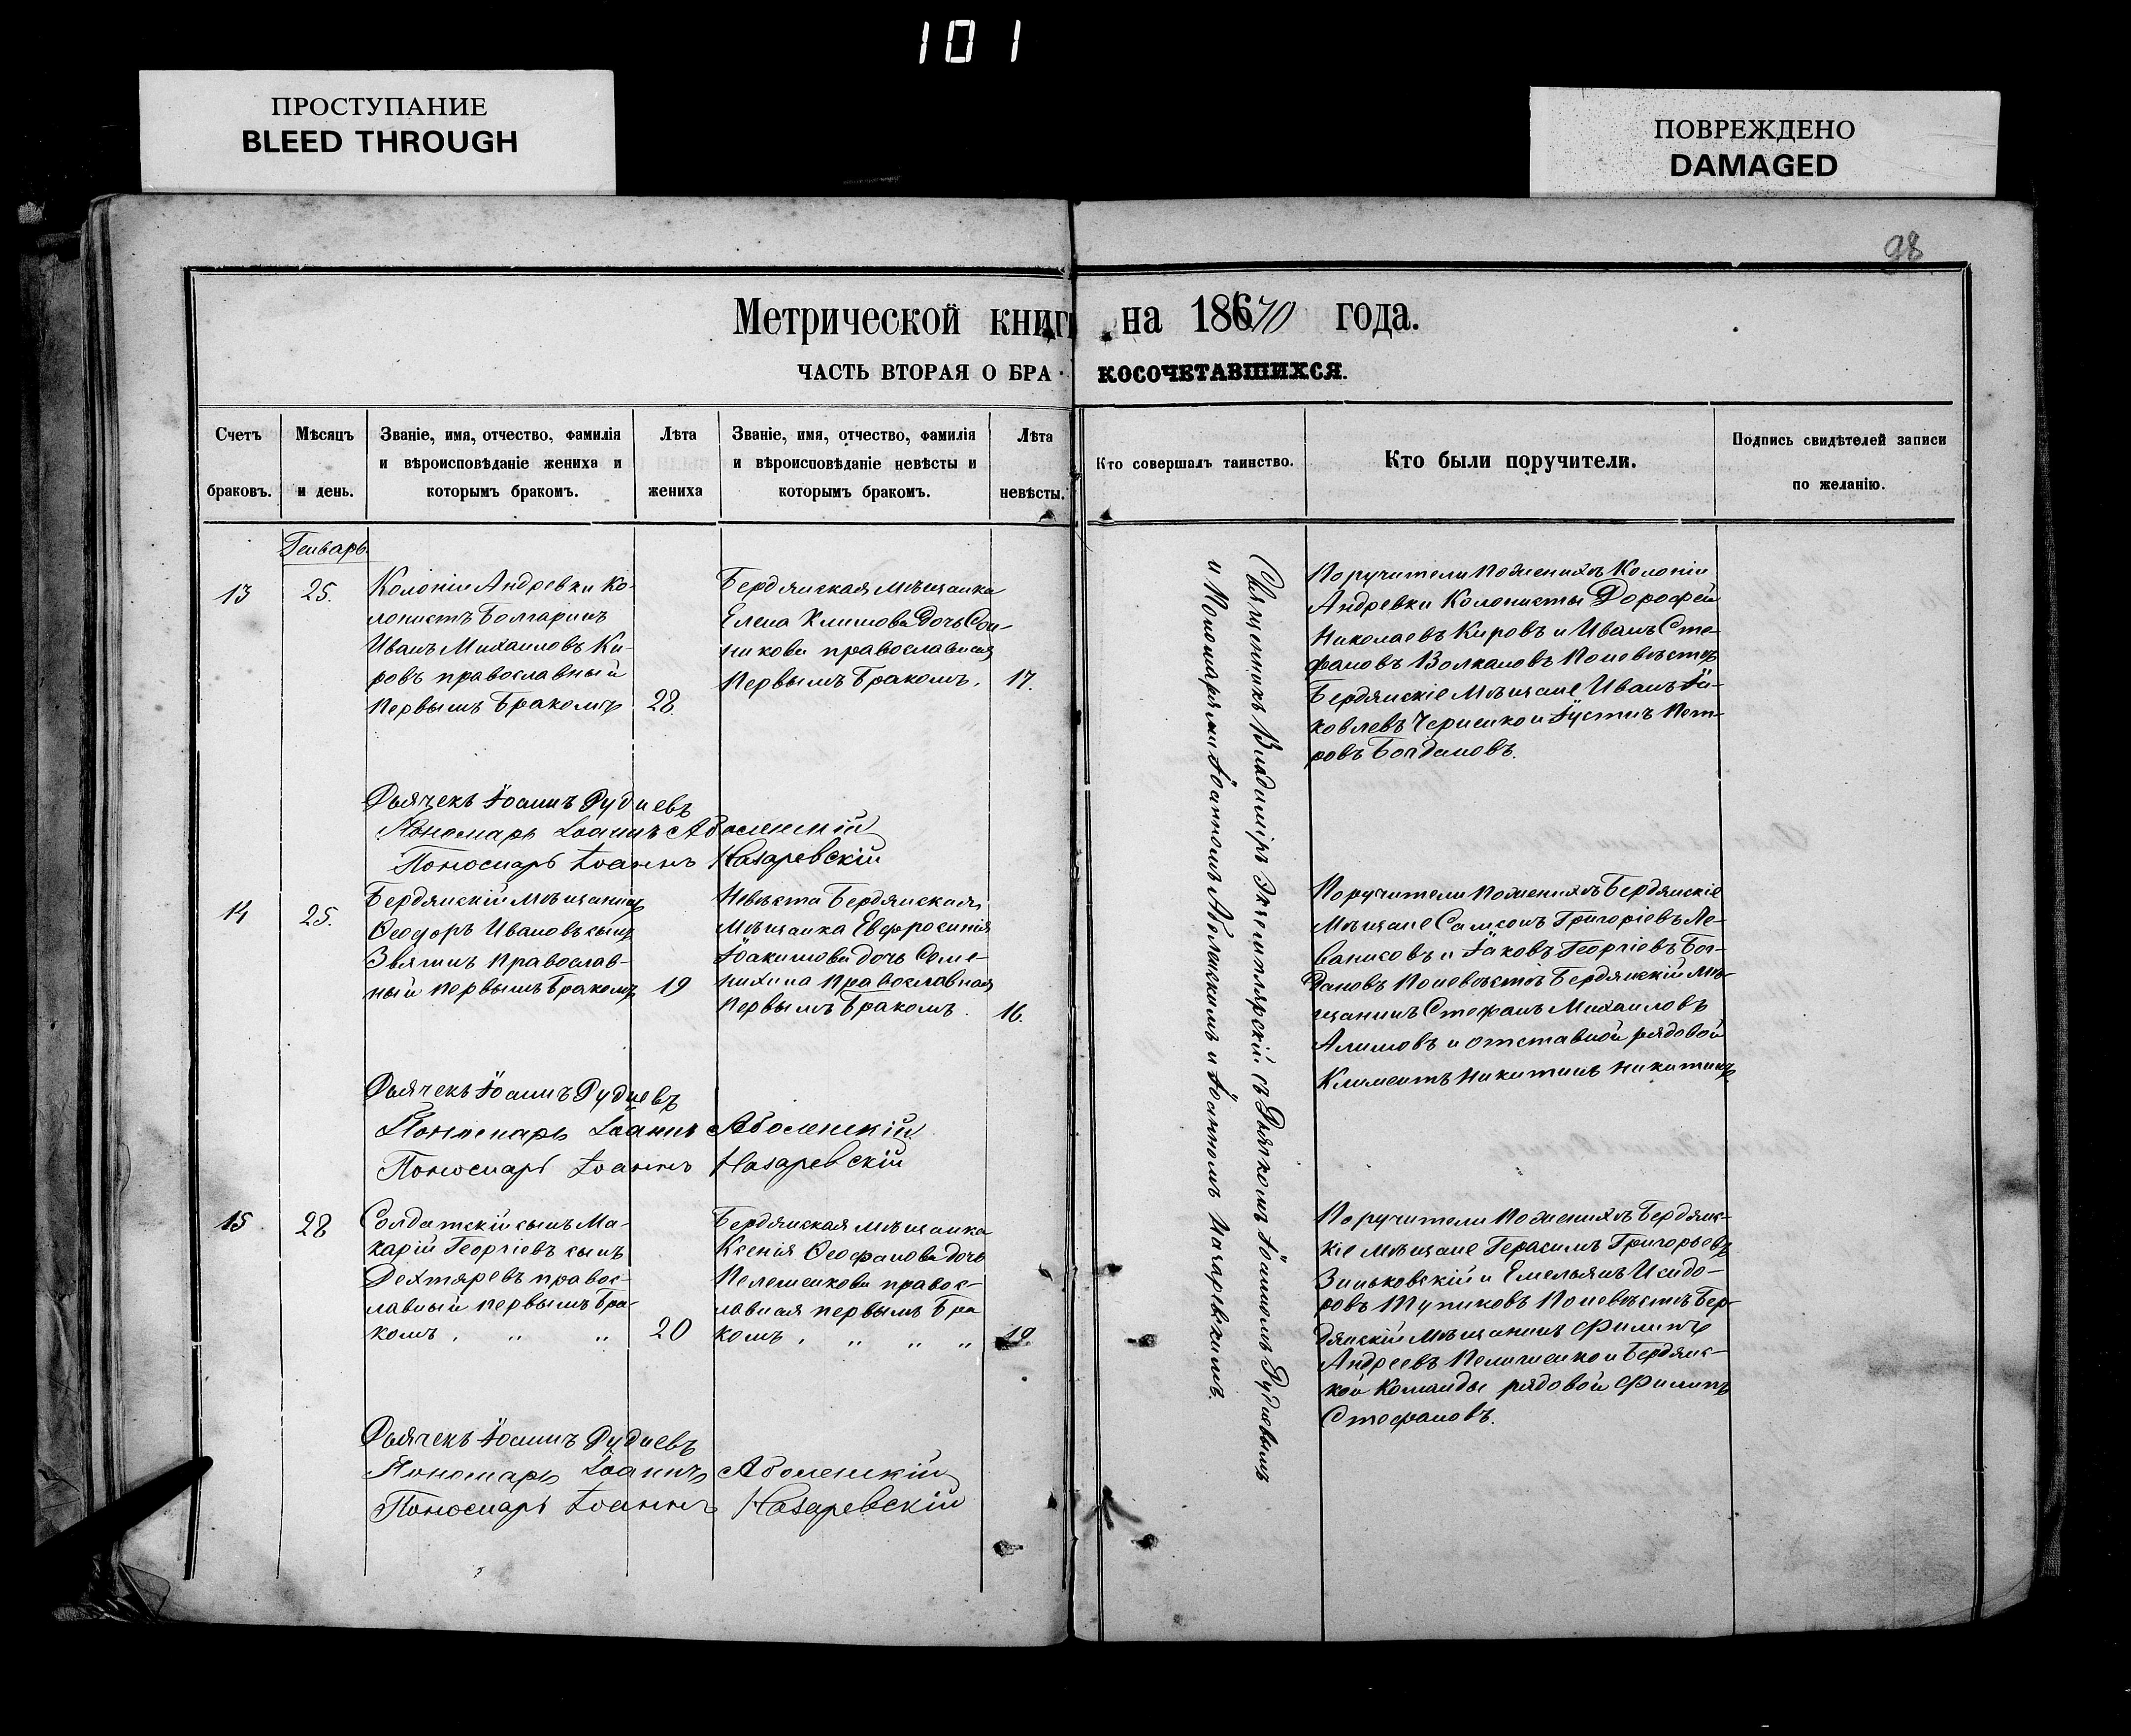 101
ПРОСТУПАНИЕ
BLEED THROUGH
ПОВРЕЖДЕНО
DAMAGED
98
Метрической книги на 1870 года.
ЧАСТЬ ВТОРАЯ О БРАКОСОЧЕТАВШИХСЯ.
Счетъ браковъ.
Мѣсяцъ и день.
Званіе, имя, отчество, фамилія
и вѣроисповѣданіе жениха и
которымъ бракомъ.
Лѣта жениха
Званіе, имя, отчество, фамилія
и вѣроисповѣданіе невѣсты и
которымъ бракомъ.
Лѣта невѣсты.
Кто совершалъ таинство.
Кто были поручители.
Подпись свидѣтелей записи
по желанію.
Генварь
13
25.
Колоніи Андревки Ко-
лонистъ Болгаринъ
Иванъ Михаиловъ Ки-
ровъ православный
первымъ бракомъ
28.
Бердянская мѣщанка
Елена Климова дочь
православная
первымъ бракомъ.
17.
Священникъ Владиміръ Экземплярскій съ Дьячкомъ Іоанномъ Рудневымъ
и Пономарями Іоанномъ Аболенскимъ и Іоанномъ Назаревскимъ.
Поручители по женихѣ Колоніи
Андревки Колонисты Дорофей
Николаевъ Кировъ и Иванъ Сте-
фановъ Волкановъ по невѣстѣ
Бердянскіе мѣщане Иванъ Іа-
ковлевъ Черненко и Іустинъ Пет-
ровъ Богдановъ.
Дьячекъ Іоаннъ Рудневъ
Пономарь Іоаннъ Аболенскій
Пономарь Іоаннъ Назаревскій
14
25.
Бердянскій мѣщанинъ
Ѳеодоръ Ивановъ сынъ
Звягинъ православ-
ный первымъ бракомъ
19
Невѣста Бердянская
мѣщанка Евфросинія
Іоакимова дочь Семе-
нихина православная
первымъ бракомъ.
16.
Поручители по женихѣ Бердянскіе
мѣщане Самсонъ Григоріевъ
и Іаковъ Георгіевъ Бог-
дановъ по невѣстѣ Бердянскій мѣ-
щанинъ Стефанъ Михаиловъ
Алимовъ и отставной рядовой
Климентъ Никитинъ Никитинъ
Дьячекъ Іоаннъ Рудневъ
Пономарь Іоаннъ Аболенскій
Пономарь Іоаннъ Назаревскій
15
28
Солдатскій сынъ Ма-
карій Георгіевъ сынъ
Дехтяревъ правос-
лавный первымъ бра-
комъ. „ „
20
Бердянская мѣщанка
Ксенія Ѳеофанова дочь
Пелешенкова правос-
лавная первымъ бра
комъ. „ „ „
19.
Поручители по женихѣ Бердянс-
кіе мѣщане Герасимъ Григорьевъ
Зиньковскій и Емельянъ Исидо-
ровъ Тупиковъ по невѣстѣ Бер-
дянскій мѣщанинъ Филипъ
Андреевъ Пелишенко и Бердянс-
кой Команды рядовой Филипъ
Стефановъ.
Дьячекъ Іоаннъ Рудневъ
Пономарь Іоаннъ Аболенскій
Пономарь Іоаннъ Назаревскій